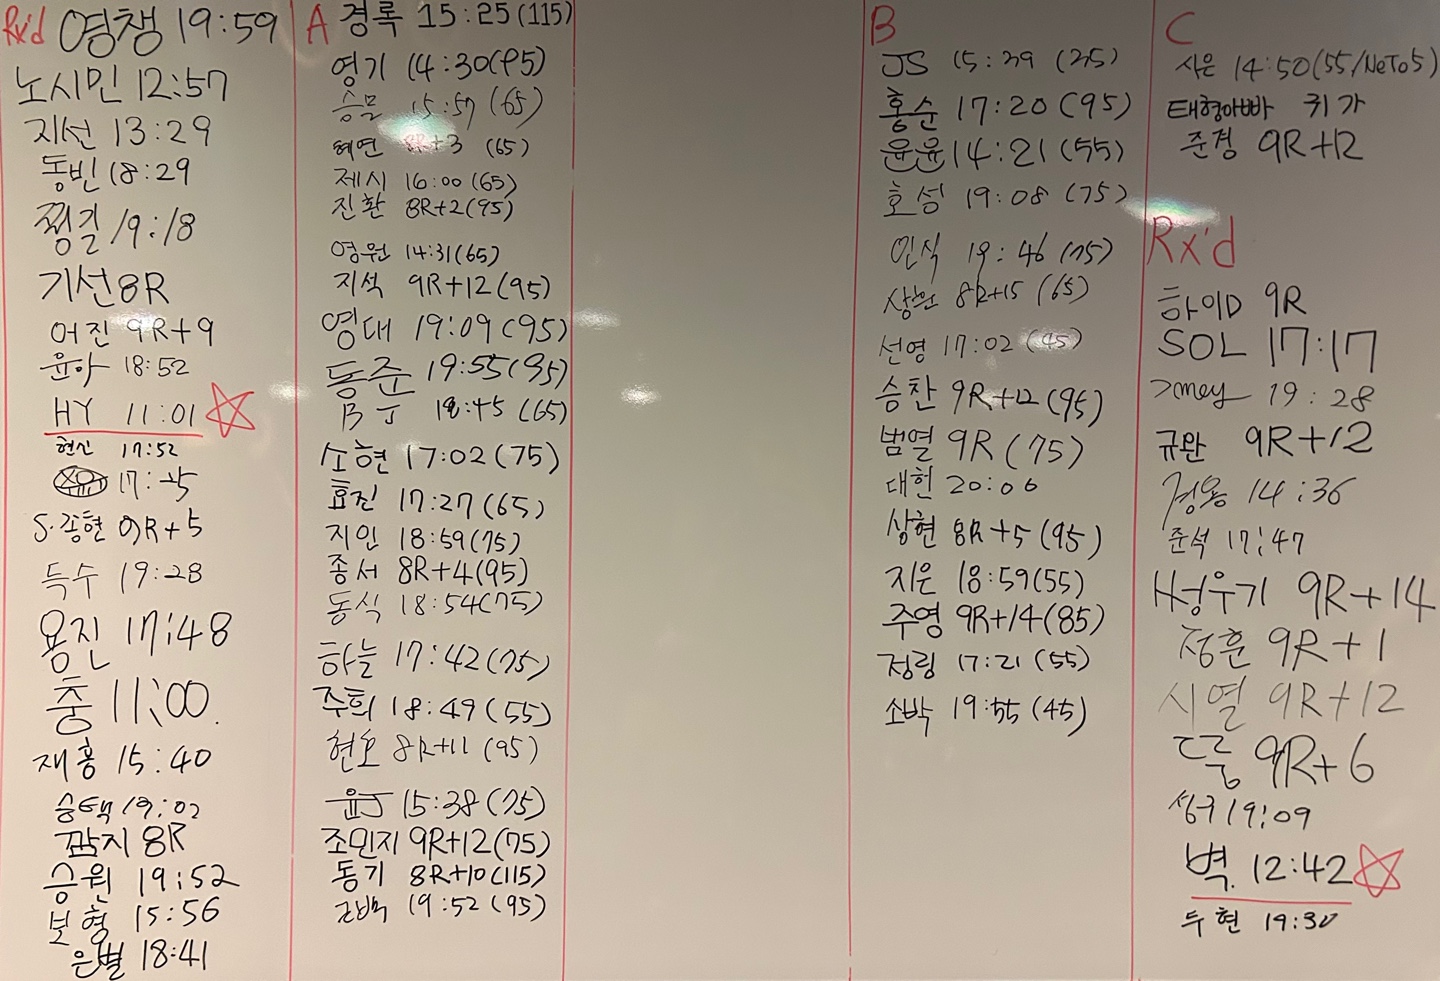 Rx'd
영챙 19:59
노시민 12:57
지선 13:29
동빈 18:29
찡길 19:18
기선 8R
어진 9R+9
윤아 18:52
HY 11:01
현신 17:52
S.종현 9R+5
득수 19:28
용진 17:48
충 11:00
재홍 15:40
승택 19:02
깜지 8R
승원 19:52
보형 15:56
은별 18:41
A
경록 15:25(115)
영기 14:30(95)
15:57 (65)
혜연 8R+3 (65)
제시 16:00(65)
진환 8R+2(95)
영원 14:31(65)
지석 9R+12(95)
영대 19:09(95)
동준 19:55(95)
BJ (65)
소현 17:02(75)
효진 17:27(65)
지인 18:59(75)
종서 8R+4(95)
동식 18:54(75)
하늘 17:42(75)
주희 18:49(55)
현호 8R+11 (95)
윤J 15:38(75)
조민지 9R+12(75)
동기 8R+10(115)
19:52(95)
B
JS 15:39
홍순 17:20(95)
윤윤 14:21(55)
호성 19:08(75)
인식 19:46(75)
상원 8R+15 (65)
선영 17:02 (45)
승찬 9R+12(95)
범열 9R(75)
대헌 20:06
상현 8R+5(95)
지은 18:59(55)
주영 9R+14(85)
정링 17:21(55)
소박 19:55(45)
C
사은 14:50(55/NeTo5)
태형아빠 귀가
준경 9R+12
Rx'd
하이D 9R
SOL 17:17
19:28
규완 9R+12
정용 14:36
준석 17:47
H성우기 9R+14
정훈 9R+1
시열 9R+12
9R+6
성구 19:09
벽. 12:42
두현 19:30